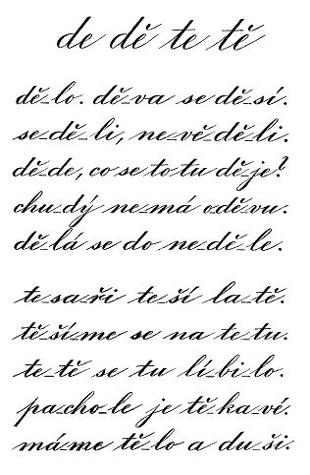 de dě te tě
dě-lo. dě-va se dě-sí.
se-dě-li, ne-vě-dě-li.
dě-de, co se to tu dě-je?
chu-dý ne-má o-dě-vu.
dě-lá se do ne-dě-le.
te-sa-ři te-ší la-tě.
tě-ší-me se na te-tu.
te-tě se tu lí-bi-lo.
pa-cho-le je tě-ka-vé.
má-me tě-lo a du-ši.